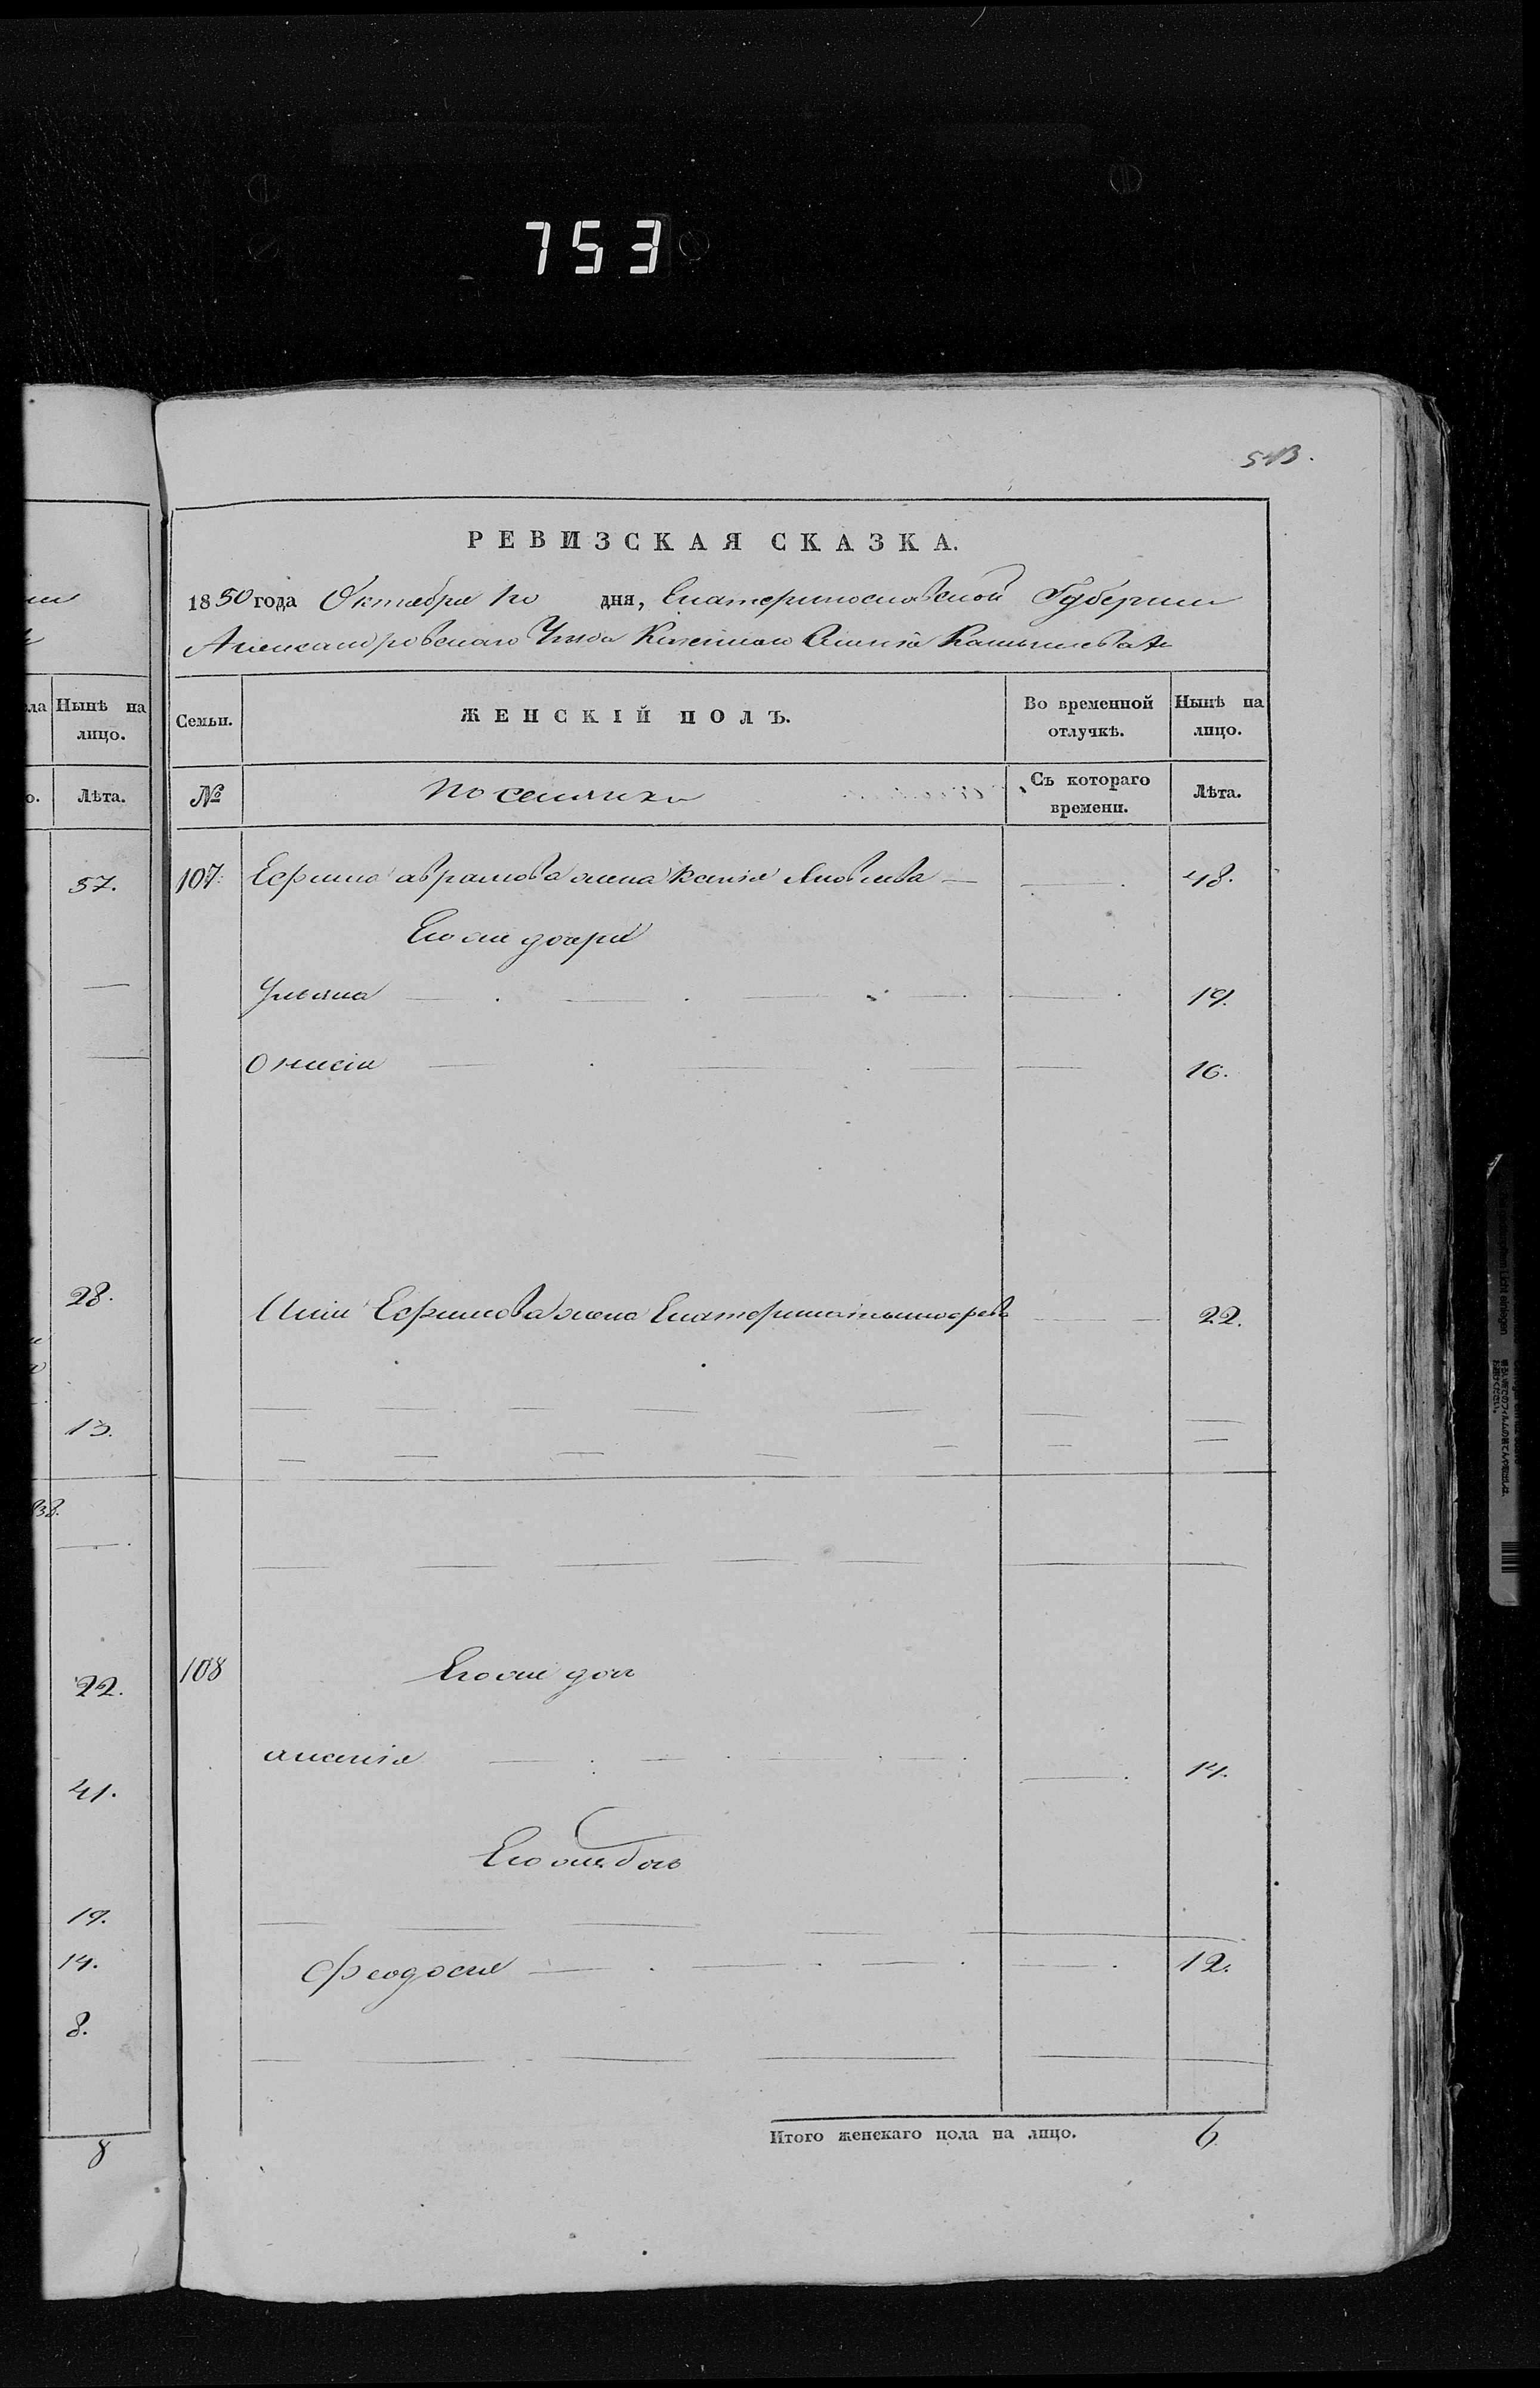 753
543.
РЕВИЗСКАЯ СКАЗКА.
1850 года Октября 1го дня, Екатеринославской Губернии
Александровскаго Уезда Казенного Селения Камышеваха
Нынѣ на лицо.
Лѣта.
57.
28.
13.
22.
41.
19.
14.
8.
8
Семьи. ЖЕНСКІЙ ПОЛЪ. Во временной отлучкѣ. Нынѣ на лицо.
№ Поселянки Съ котораго времени. Лѣта.
107. Ефима Аврамова жена Ксенія Яковлева 48.
Его же дочери
Ульяна 19.
Онисія 16.
Ефимова жена Екатерина Тимофеева 22.
108 Его же доч
Аксенія 14.
Его же доч
Феодосия 12.
Итого женскаго пола на лицо. 6